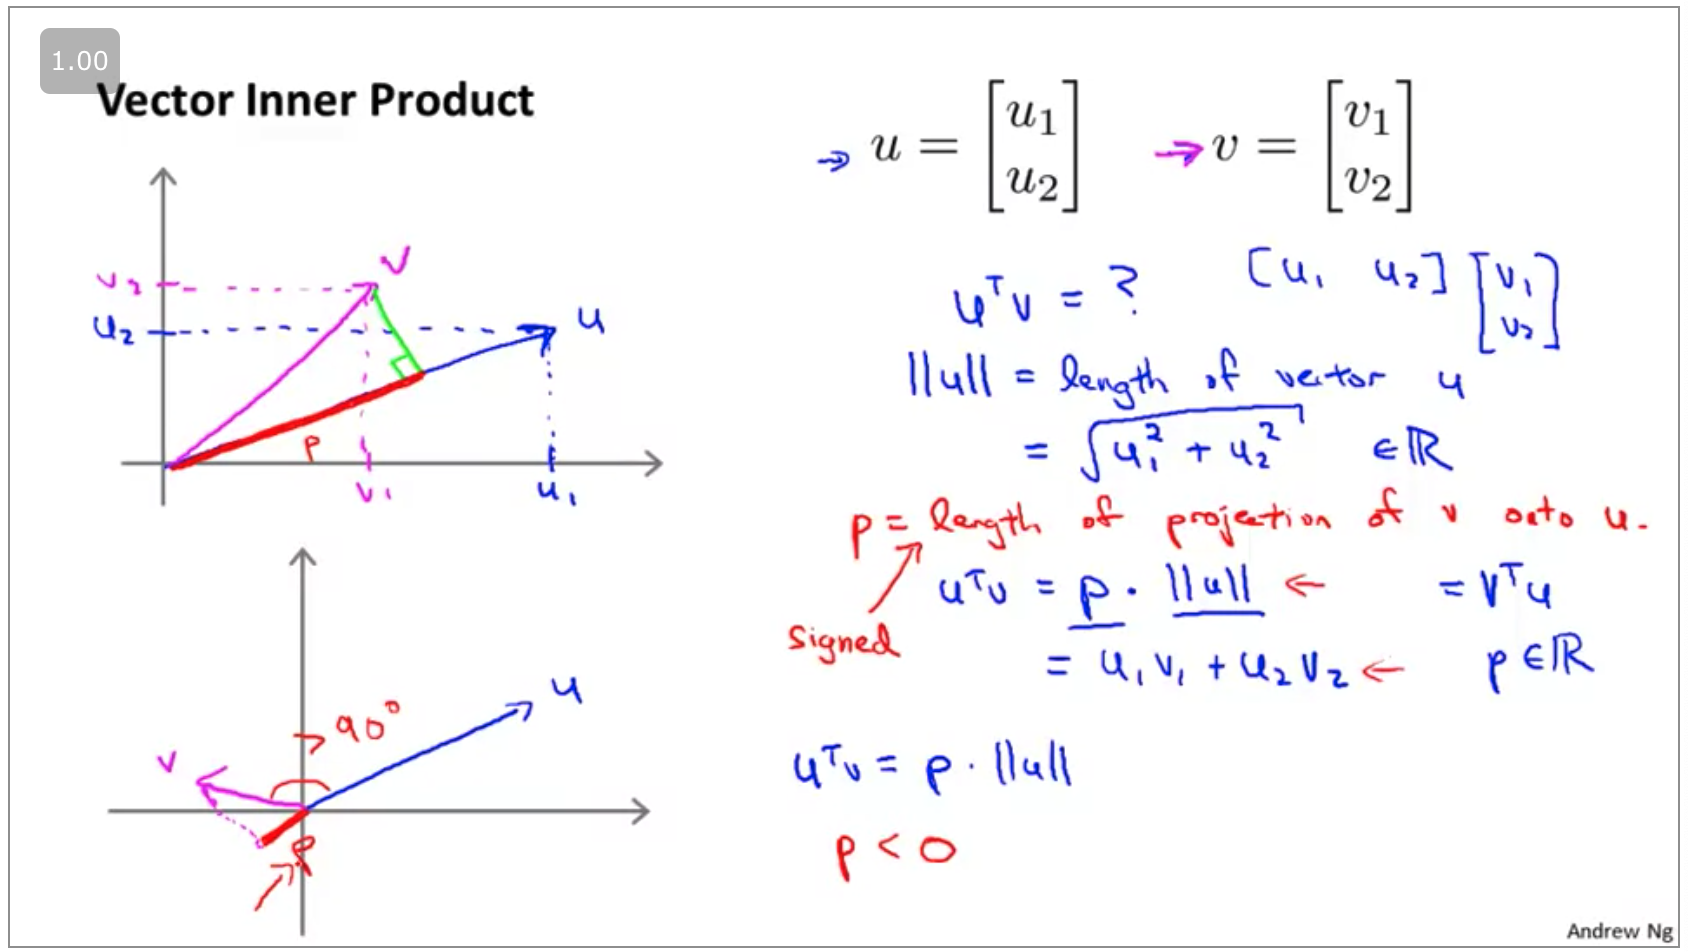 1.00
Vector Inner Product
→ u = [u1 u2] → v = [v1 v2]
uᵀv = ? [u₁ u₂] [v₁ v₂]
||u|| = length of vector u
= √(u₁² + u₂²) ∈ ℝ
p = length of projection of v onto u.
signed
uᵀv = p · ||u|| ← = vᵀu
= u₁v₁ + u₂v₂ ← p ∈ ℝ
uᵀv = p · ||u||
p < 0
v
v₂
u₂
u
p
v₁
u₁
u
> 90°
v
p
Andrew Ng